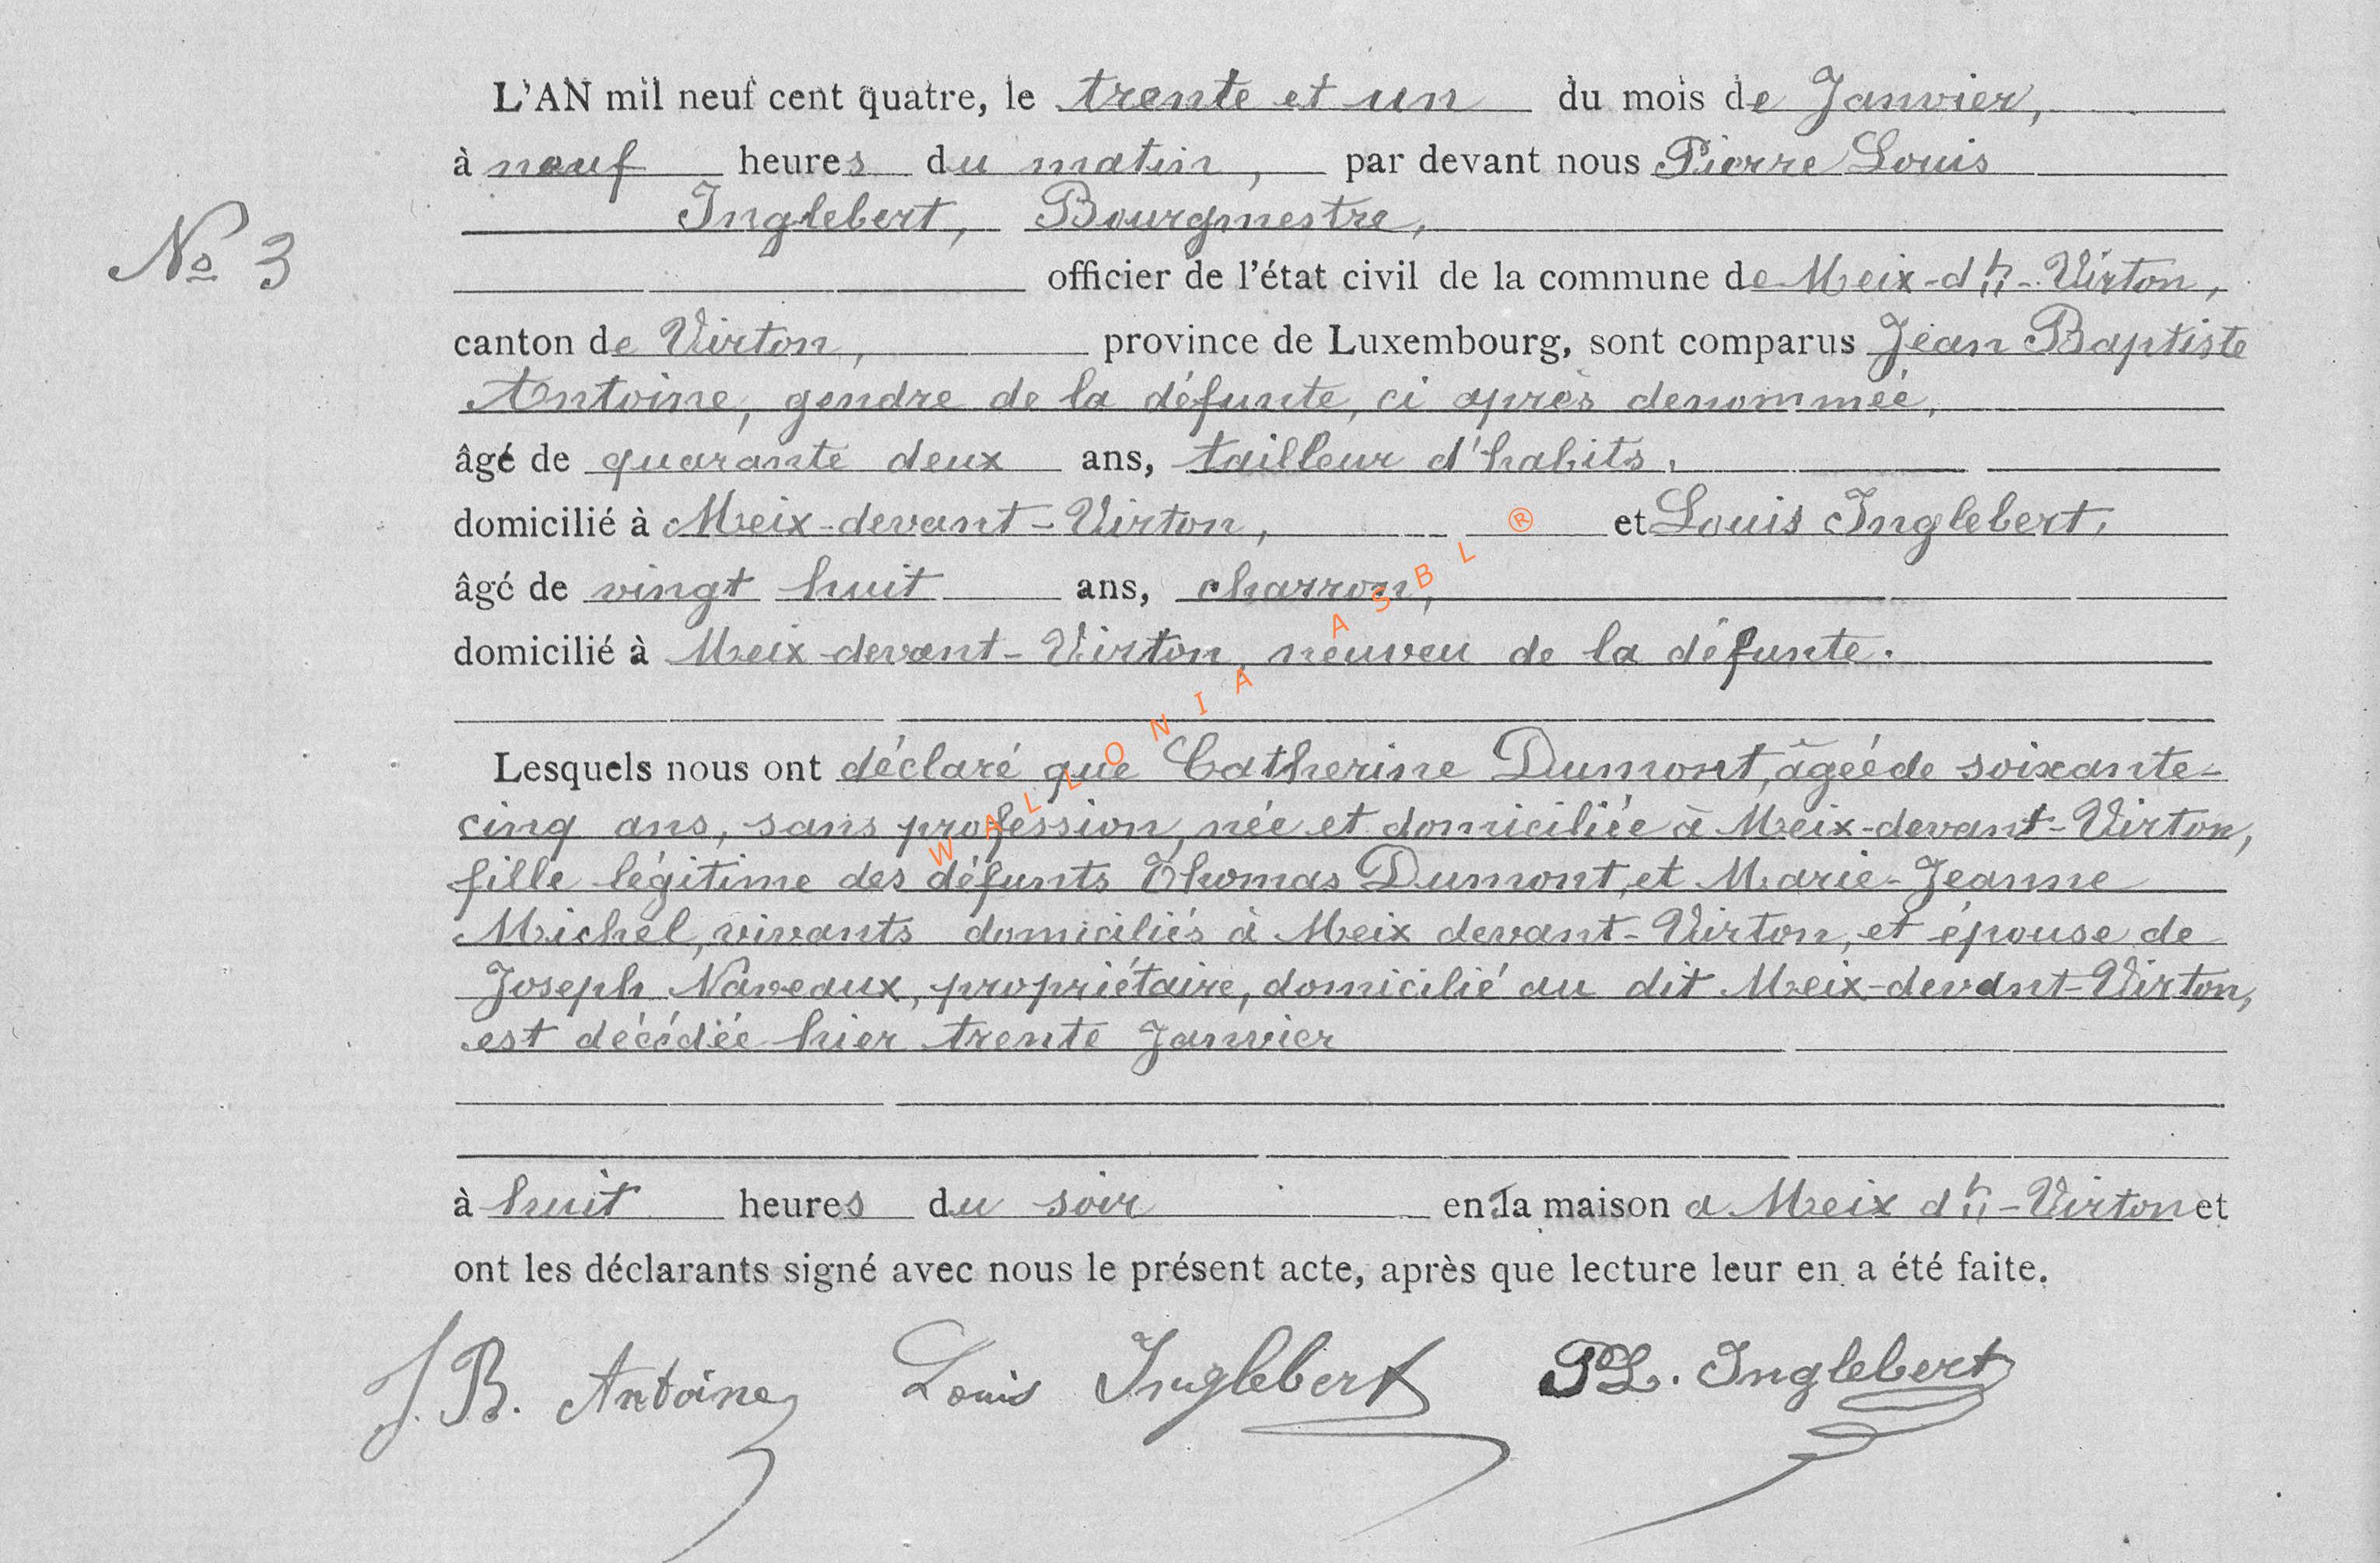 L'AN mil neuf cent quatre, le trente et un du mois de Janvier,
à neuf heures du matin, par devant nous Pierre Louis
Inglebert, Bourgmestre,
No 3
officier de l'état civil de la commune de Meix-dt-Virton,
canton de Virton, province de Luxembourg, sont comparus Jean Baptiste
Antoine, gendre de la défunte, ci après denommée,
âgé de quarante deux ans, tailleur d'habits,
domicilié à Meix-devant-Virton, et Louis Inglebert,
âgé de vingt huit ans, charron,
domicilié à Meix-devant-Virton, neuveu de la défunte.
Lesquels nous ont déclaré que Catherine Dumont, âgéé de soixante-
cinq ans, sans profession, née et domiciliée à Meix-devant-Virton,
fille légitime des défunts Thomas Dumont, et Marie-Jeanne
Michel, vivants domiciliés à Meix devant-Virton, et épouse de
Joseph Naveaux, propriétaire, domicilié au dit Meix-devant-Virton,
est décédée hier trente Janvier
à huit heures du soir en la maison a Meix dt-Virton et
ont les déclarants signé avec nous le présent acte, après que lecture leur en a été faite.
J.B. Antoine Louis Inglebert PL. Inglebert
WALLONIA ASBL ®